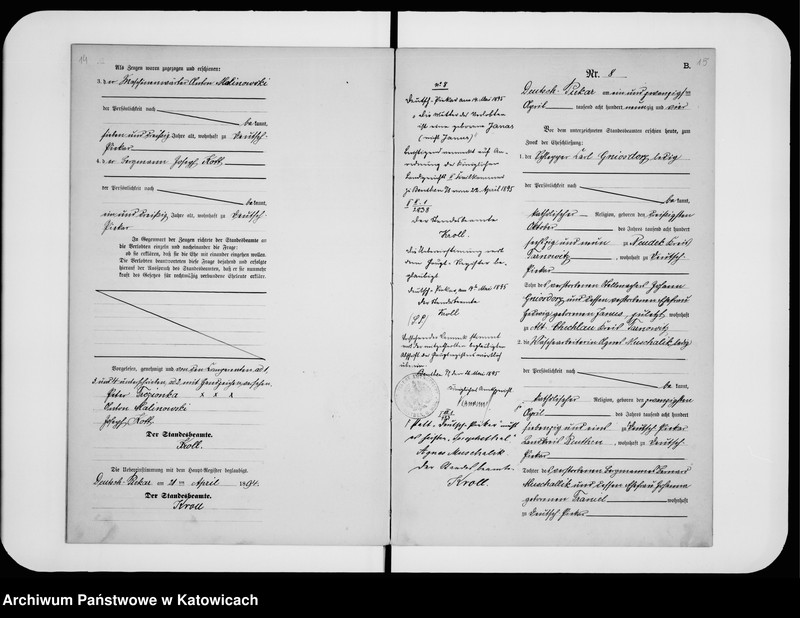 14
Als Zeugen waren zugezogen und erschienen:
3. der Maschinenwärter Anton Malinowski
der Persönlichkeit nach
be kannt,
sieben und dreißig Jahre alt, wohnhaft zu Deutsch-
Piekar
4. der Bergmann Joseph Kott,
der Persönlichkeit nach
be kannt,
ein und dreißig Jahre alt, wohnhaft zu Deutsch-
Piekar
In Gegenwart der Zeugen richtete der Standesbeamte an
die Verlobten einzeln und nacheinander die Frage:
ob sie erklären, daß sie die Ehe mit einander eingehen wollen.
Die Verlobten beantworteten diese Frage bejahend und erfolgte
hierauf der Ausspruch des Standesbeamten, daß er sie nunmehr
kraft des Gesetzes für rechtmäßig verbundene Eheleute erkläre.
Vorgelesen, genehmigt und von den
und mit Handzeichen versehen.
Peter x x x
Anton Malinowski
Joseph Kott,
Der Standesbeamte.
Kroll.
Die Uebereinstimmung mit dem Haupt-Register beglaubigt.
Deutsch-Piekar am 21 ten April 1894.
Der Standesbeamte.
Kroll
No 8
Deutsch-Piekar am 14. Mai 1895
Die Mutter des Verlobten
ist eine geborene Janas
(nicht Janus)
berichtigend vermerkt auf An-
ordnung des Königlichen
Landgerichts
zu Beuthen O/S vom 22. April 1895
Der Standesbeamte
Kroll.
Die Uebereinstimmung mit
dem Haupt-Register be-
glaubigt
Deutsch-Piekar, am 14. Mai 1895
Der Standesbeamte
Kroll
(L.S.)
Beuthen O/S den Mai 1895
Königliches Amtsgericht
Agnes Muschalek
Der Standesbeamte.
Kroll.
B.
15
Nr. 8
Deutsch-Piekar am ein und zwanzigsten
April tausend acht hundert neunzig und vier
Vor dem unterzeichneten Standesbeamten erschienen heute, zum
Zweck der Eheschließung:
1. der Schlepper Carl Gniosdorz, ledig
der Persönlichkeit nach
be kannt,
katholischer Religion, geboren den dreißigsten
Oktober des Jahres tausend acht hundert
sechszig und neun zu Neudek Kreis
Tarnowitz, wohnhaft zu Deutsch-
Piekar
Sohn des verstorbenen Johann
Gniosdorz und dessen verstorbenen Ehefrau
Hedwig geborenen Janus, zuletzt, wohnhaft
zu Alt Chechlau Kreis Tarnowitz
2. die Agnes Muschalek ledig
der Persönlichkeit nach
be kannt,
katholischer Religion, geboren den zwanzigsten
April des Jahres tausend acht hundert
siebenzig und eins zu Deutsch Piekar
Landkreis Beuthen, wohnhaft zu Deutsch
Piekar
Tochter des verstorbenen Bergmannes
Muschallek und dessen Ehefrau Johanna
geborenen wohnhaft
zu Deutsch Piekar
Archiwum Państwowe w Katowicach